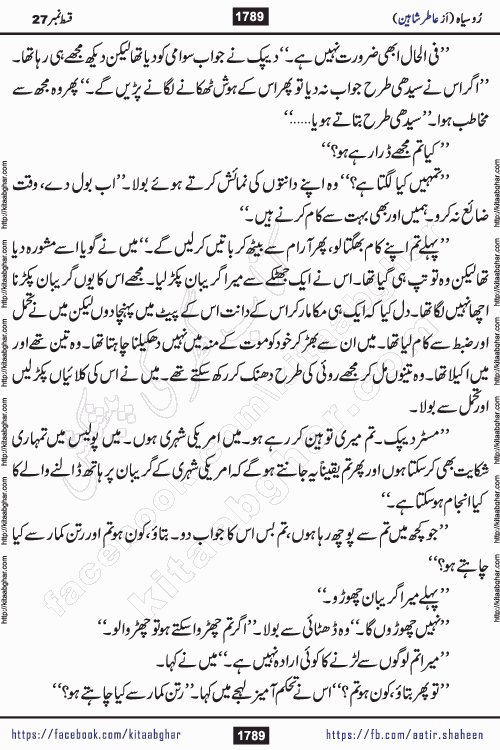 رُوسیاہ (از عاطر شاہین)
1789
قسط نمبر 27
’’فی الحال ابھی ضرورت نہیں ہے۔‘‘ دیپک نے جواب سوامی کو دیا تھا لیکن دیکھ مجھے ہی رہا تھا۔
’’اگر اس نے سیدھی طرح جواب نہ دیا تو پھر اس کے ہوش ٹھکانے لگانے پڑیں گے۔‘‘ پھر وہ مجھ سے
مخاطب ہوا۔ ’’سیدھی طرح بتاتے ہو یا......‘‘
’’کیا تم مجھے ڈرا رہے ہو؟‘‘
’’تمہیں کیا لگتا ہے؟‘‘ وہ اپنے دانتوں کی نمائش کرتے ہوئے بولا۔ ’’اب بول دے، وقت
ضائع نہ کرو۔ ہمیں اور بھی بہت سے کام کرنے ہیں۔‘‘
’’پہلے تم اپنے کام بھگتا لو، پھر آرام سے بیٹھ کر باتیں کرلیں گے۔‘‘ میں نے گویا اسے مشورہ دیا
تھا لیکن وہ تو تپ ہی گیا تھا۔ اس نے ایک جھٹکے سے میرا گریبان پکڑ لیا۔ مجھے اس کا یوں گریبان پکڑنا
اچھا نہیں لگا تھا۔ دل کیا کہ ایک ہی مکا مار کر اس کے دانت اس کے پیٹ میں پہنچا دوں لیکن میں نے تحمل
اور ضبط سے کام لیا تھا۔ میں ان سے بھڑ کر خود کو موت کے منہ میں نہیں دھکیلنا چاہتا تھا۔ وہ تین تھے اور
میں اکیلا تھا۔ وہ تینوں مل کر مجھے روئی کی طرح دھنک کر رکھ سکتے تھے۔ میں نے اس کی کلائیاں پکڑ لیں
اور تحمل سے بولا۔
’’مسٹر دیپک۔ تم میری توہین کر رہے ہو۔ میں امریکی شہری ہوں۔ میں پولیس میں تمہاری
شکایت بھی کر سکتا ہوں اور پھر تم یقیناً یہ جانتے ہو گے کہ امریکی شہری کے گریبان پر ہاتھ ڈالنے والے کا
کیا انجام ہو سکتا ہے۔‘‘
’’جو کچھ میں تم سے پوچھ رہا ہوں، تم بس اس کا جواب دو۔ بتاؤ، کون ہو تم اور رتن کمار سے کیا
چاہتے ہو؟‘‘
’’پہلے میرا گریبان چھوڑو۔‘‘
’’نہیں چھوڑوں گا۔‘‘ وہ ڈھٹائی سے بولا۔ ’’اگر تم چھڑوا سکتے ہو تو چھڑوا لو۔‘‘
’’میرا تم لوگوں سے لڑنے کا کوئی ارادہ نہیں ہے۔‘‘ میں نے کہا۔
’’تو پھر بتاؤ، کون ہو تم؟‘‘ اس نے تحکم آمیز لہجے میں کہا۔ ’’رتن کمار سے کیا چاہتے ہو؟‘‘
https://facebook.com/kitaabghar
1789
https://fb.com/aatir.shaheen
http://kitaabghar.com
http://kitaabghar.com
http://kitaabghar.com
http://kitaabghar.com
http://kitaabghar.com
http://kitaabghar.com
http://kitaabghar.com
http://kitaabghar.com